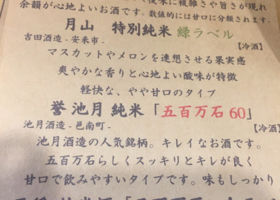 余韻が心地よいお酒です。数値的には甘口に分類されます。
月山 特別純米 緑ラベル
吉田酒造 - 安来市 - 【冷酒】
マスカットやメロンを連想させる果実感
爽やかな香りと心地よい酸味が特徴
軽快な、やや甘口のタイプ
誉池月 純米 「五百万石60」
池月酒造 - 邑南町 - 【冷酒】
池月酒造の人気銘柄。キレイなお酒です。
五百万石らしくスッキリとキレが良く
甘口で飲みやすいタイプです。味もしっかり